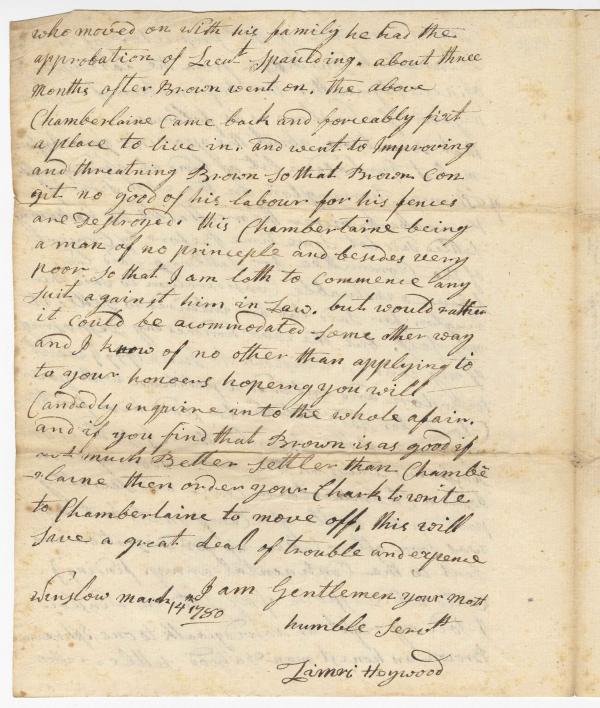 who moved on with his family he had the
approbation of Lieut Spaulding. about three
Months after Brown went on. the above
Chamberlaine Came back and forceably fixt
a place to live in. and went to Improving
and threatning Brown so that Brown Can
git no good of his labour for his fences
are Destroyed. this Chamberlaine being
a man of no principle and besides very
poor so that I am loth to Commence any
suit against him in Law. but would rather
it could be acommodated some other way
and I know of no other than applying to
to your honoers hopeing you will
Candedly inquire into the whole afair.
and if you find that Brown is as good if
not much Better Settler than Chambe
rlaine then order your Clark to write
to Chamberlaine to move off, this will
save a great deal of trouble and expence
I am Gentlemen your Most
Winslow march 14th 1780
humble Servt
Zimri Heywood